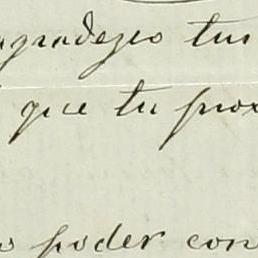 agradezco tus
que tu prox
poder con